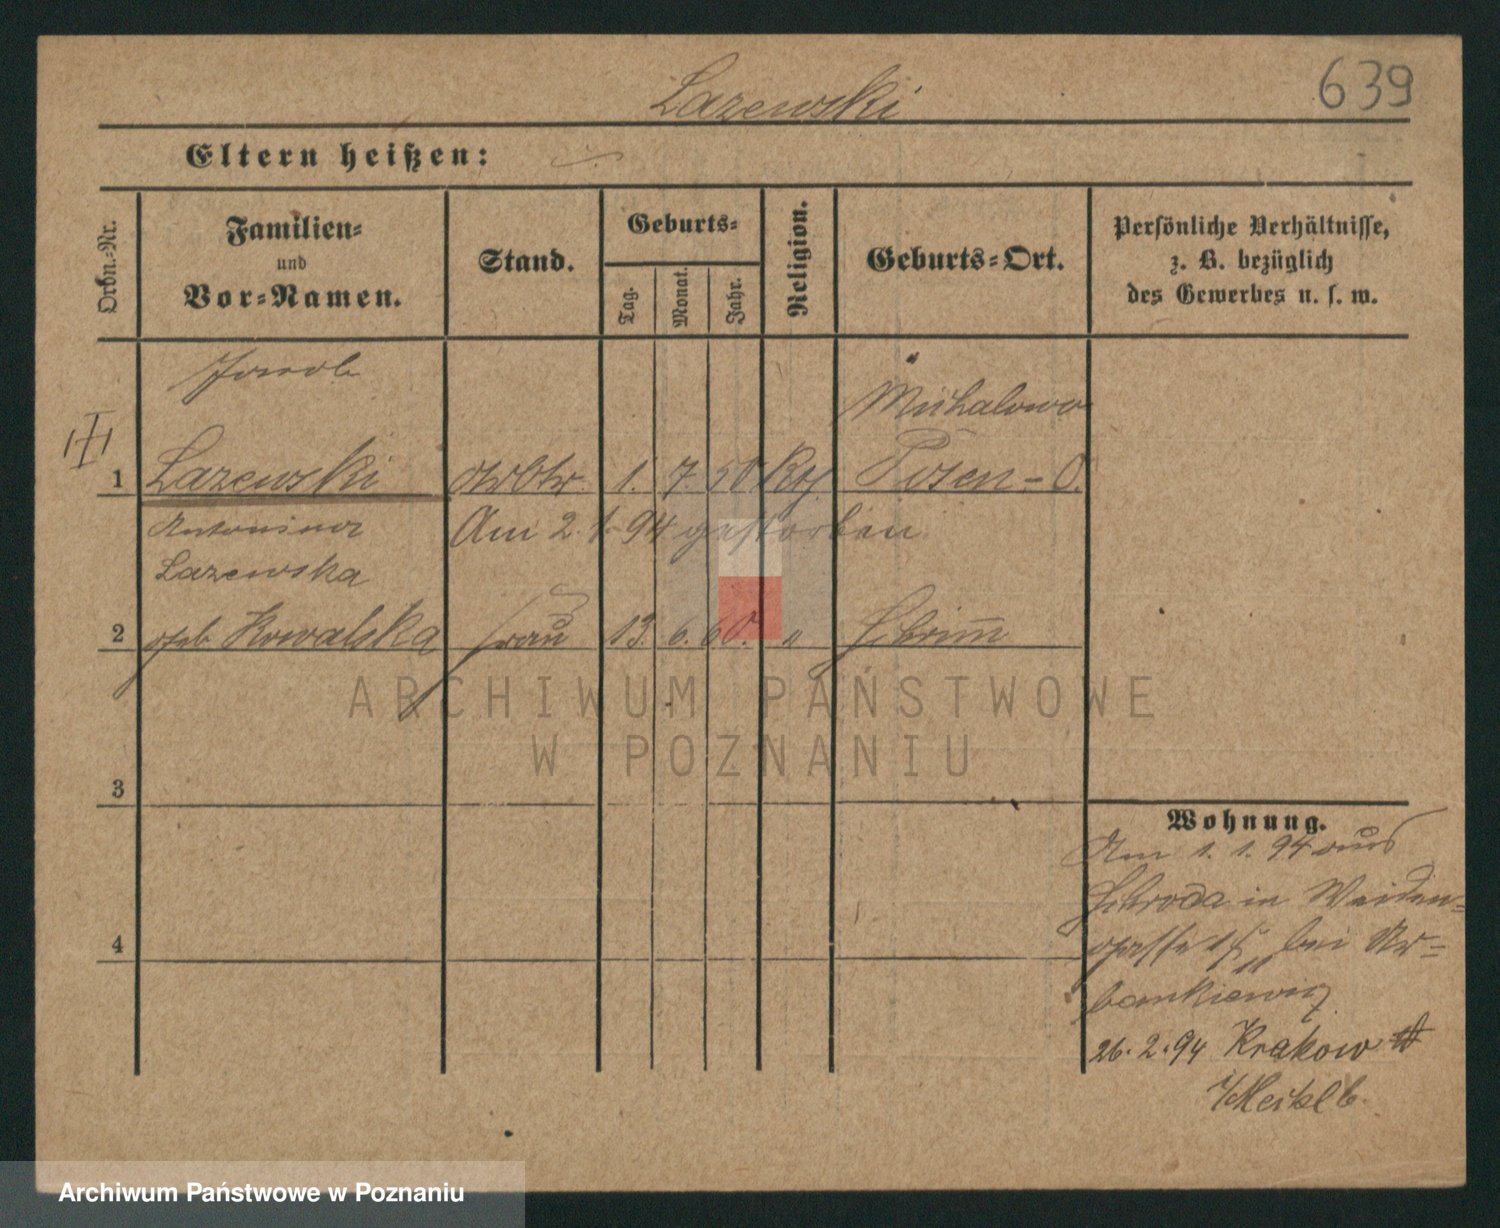 639
Lazewski
Eltern heißen:
Ordn.-Nr.
Familien-
und
Vor-Namen.
Stand.
Geburts-
Tag.
Monat.
Jahr.
Religion.
Geburts-Ort.
Persönliche Verhältnisse,
z. B. bezüglich
des Gewerbes u. s. w.
Jacob
Michalowo
1 Lazewski Arbtr. 1. 7. 50 Kth. Posen-O.
Antonina Am 2. 1. 94 gestorben
Lazewska
2 geb Kowalska Frau 13. 6. 60. " Schrimm
ARCHIWUM PAŃSTWOWE
W POZNANIU
3
Wohnung.
Am 1. 1. 94 aus
Schroda in Weiden-
4
gasse bei Ur-
bankiewicz
26. 2. 94 Krakow
Archiwum Państwowe w Poznaniu